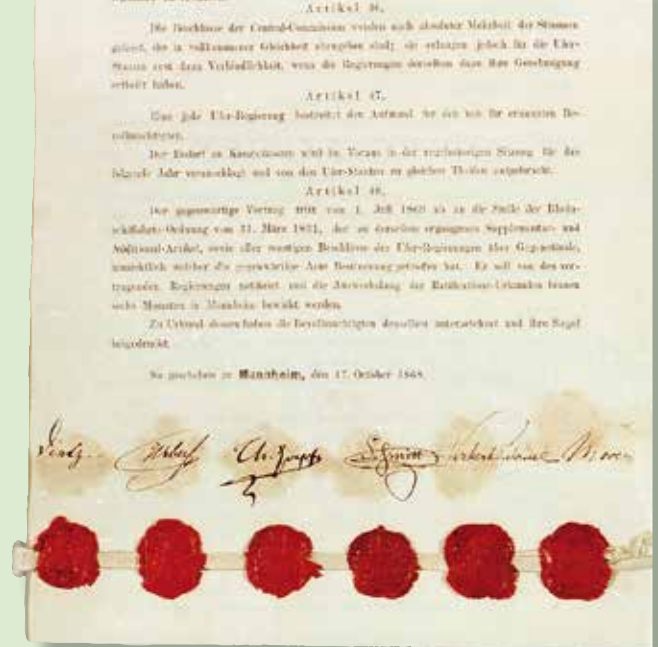 Artikel 46.
Die Beschlüsse der Central-Commission werden nach absoluter Mehrheit der Stimmen
gefasst, die in vollkommener Gleichheit abzugeben sind; sie erlangen jedoch für die Ufer-
Staaten erst dann Verbindlichkeit, wenn die Regierungen derselben dazu ihre Genehmigung
ertheilt haben.
Artikel 47.
Eine jede Ufer-Regierung bestreitet den Aufwand für den von ihr ernannten Be-
vollmächtigten.
Der Bedarf an Kanzleikosten wird im Voraus in der regelmässigen Sitzung für das
folgende Jahr veranschlagt und von den Ufer-Staaten zu gleichen Theilen aufgebracht.
Artikel 48.
Der gegenwärtige Vertrag tritt vom 1. Juli 1869 ab an die Stelle der Rhein-
schiffahrts-Ordnung vom 31. März 1831, der zu derselben ergangenen Supplementar- und
Additional-Artikel, sowie aller sonstigen Beschlüsse der Ufer-Regierungen über Gegenstände,
hinsichtlich welcher die gegenwärtige Acte Bestimmung getroffen hat. Er soll von den ver-
tragenden Regierungen ratificirt und die Auswechslung der Ratifications-Urkunden binnen
sechs Monaten in Mannheim bewirkt werden.
Zu Urkund dessen haben die Bevollmächtigten denselben unterzeichnet und ihre Siegel
beigedruckt.
So geschehen zu Mannheim, den 17. October 1868.
Dietz. Weber Schmitt